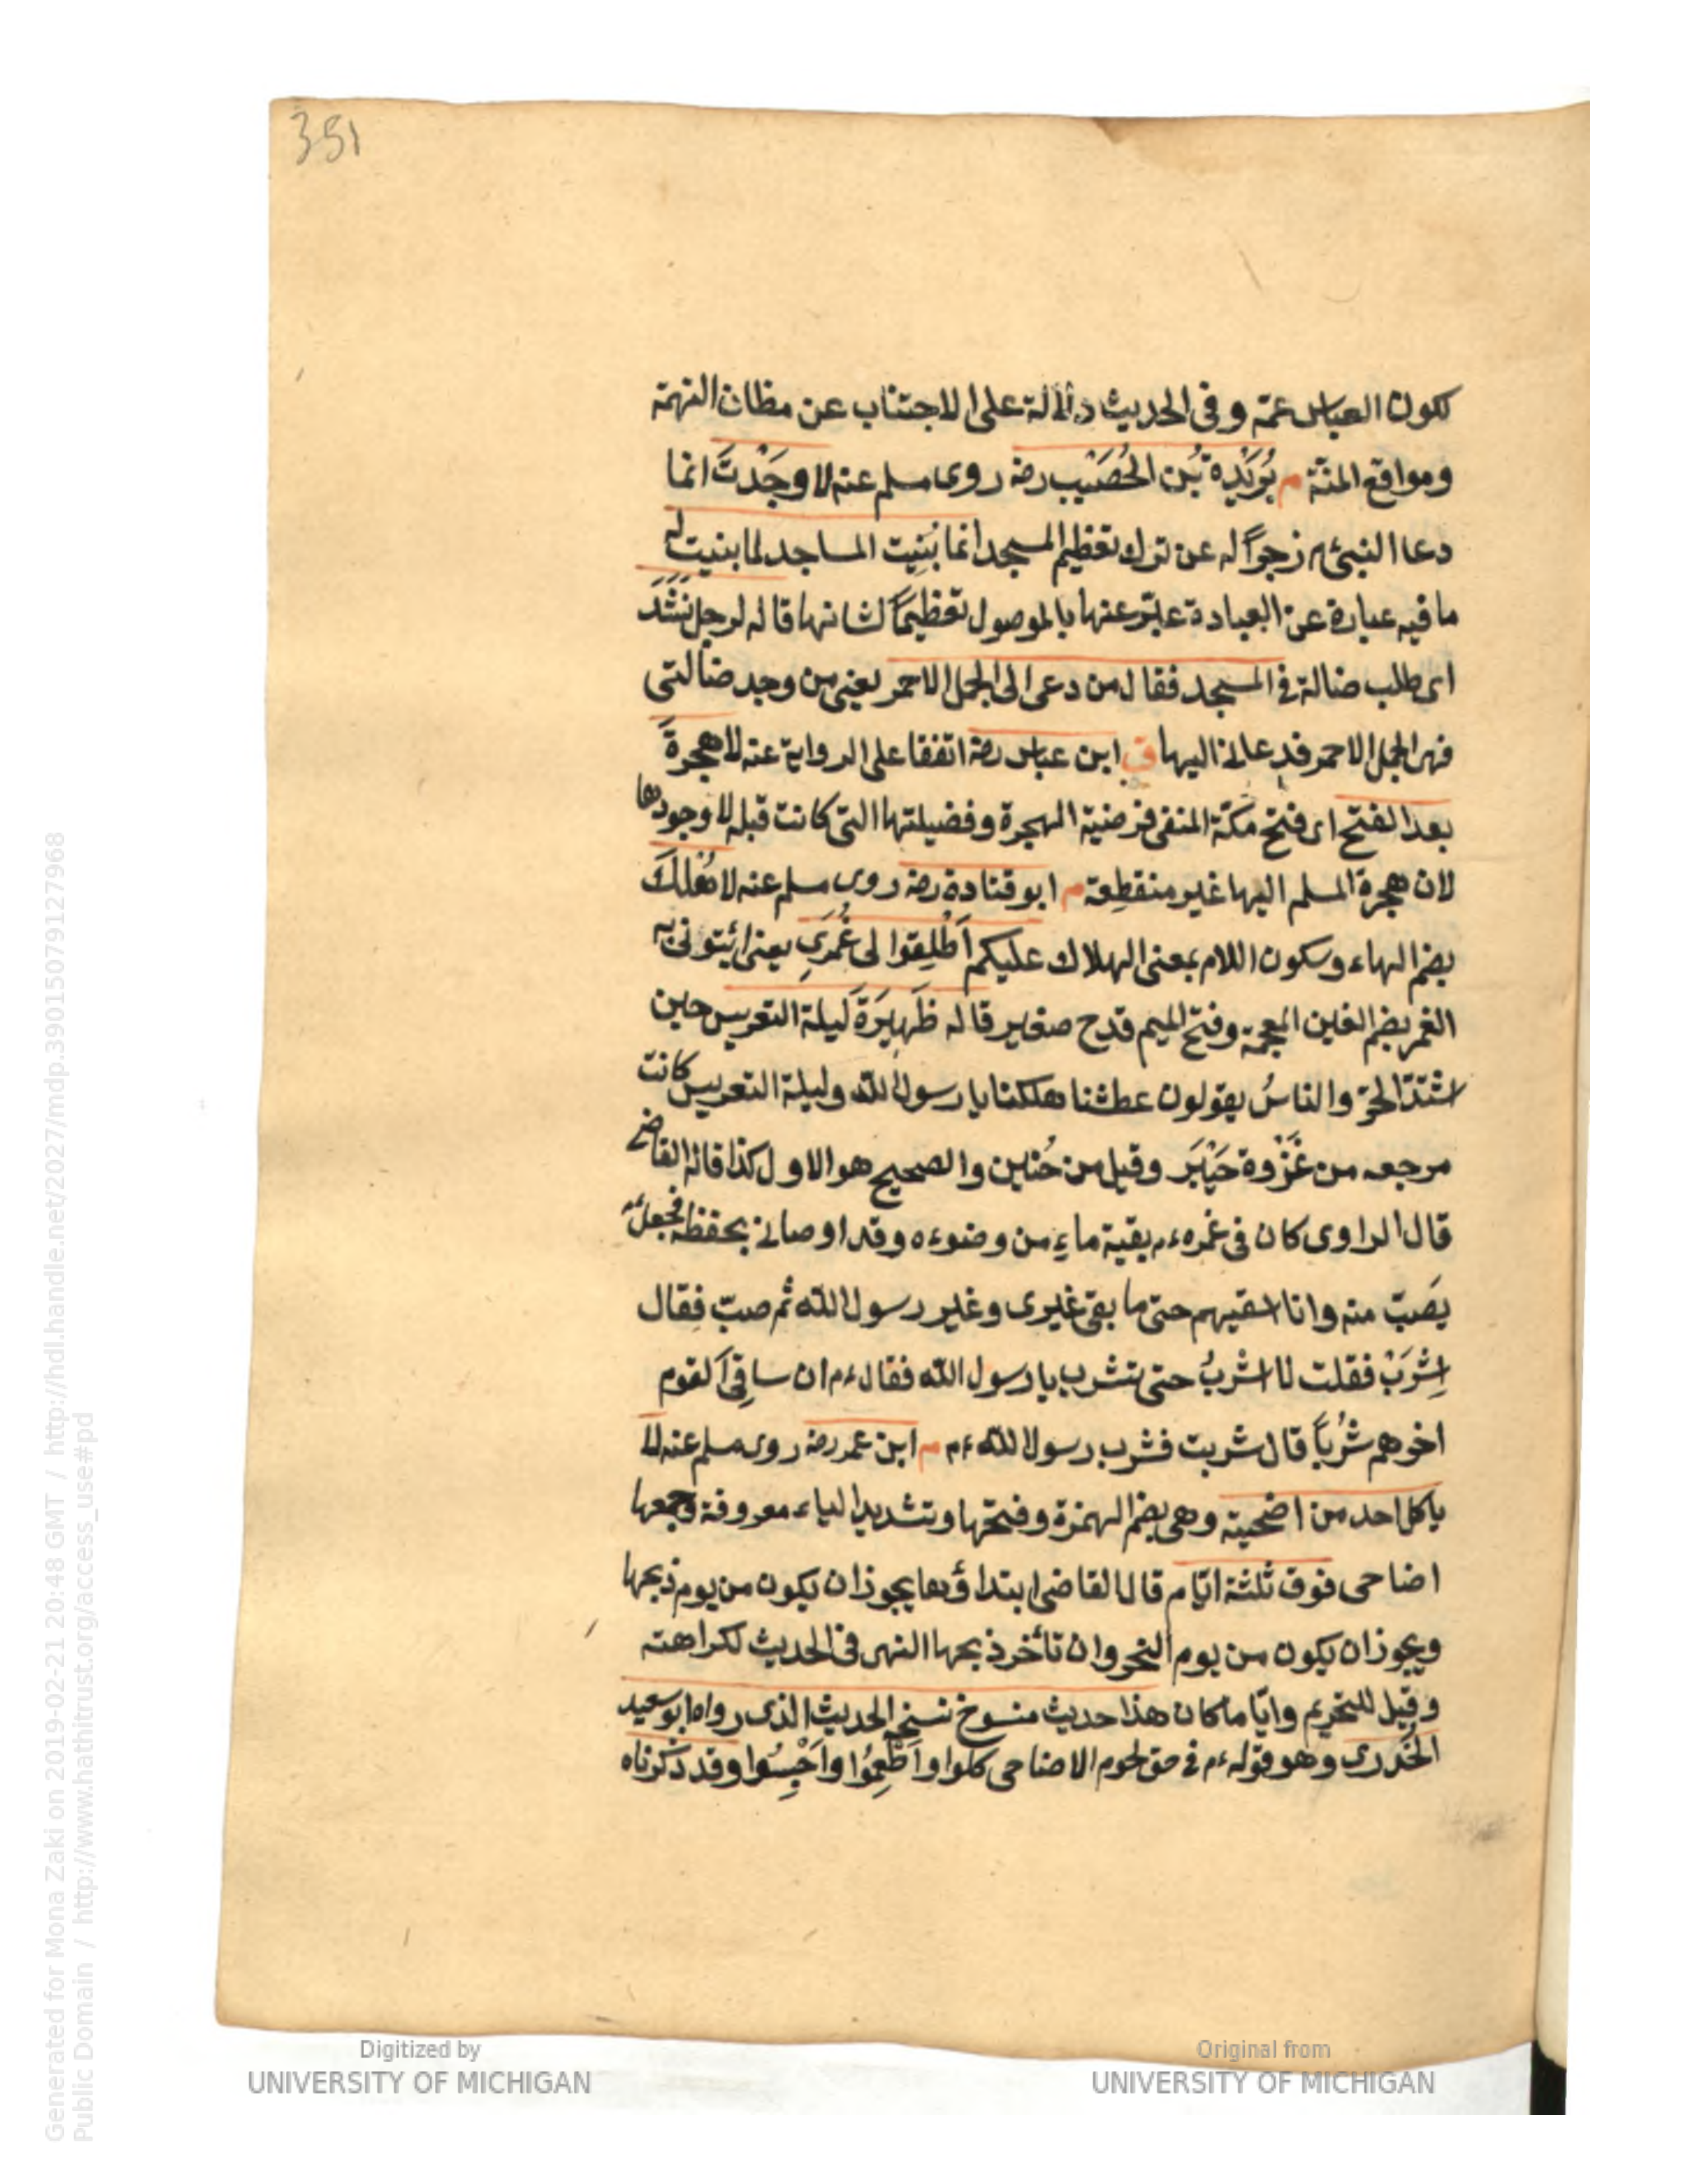 351
لكون العباس عمّه وفى الحديث دلالة على الاجتناب عن مظان التهمة
ومواقع المنّة م بُرَيْدة بُن الحُصَيْب رضه روى مسلم عنه لا وجَدْتَ انما
دعا النبىّ م زجراً له عن ترك تعظيم المسجد انما بُنِيت المساجد لما بنيت له
ما فيه عبارة عن العبادة عبّر عنها بالموصول تعظيماً لشانها قاله لرجل نَشَدَ
اى طلب ضالة فى المسجد فقال من دعى الى الجمل الاحمر يعنى من وجد ضالتى
فهى الجمل الاحمر فدعانى اليها ق ابن عباس رضه اتفقا على الرواية عنه لا هجرةَ
بعد الفتح اى فتح مكّة المنفى فرضية الهجرة وفضيلتها التى كانت قبله لا وجودها
لان هجرة المسلم اليها غير منقطِعة م ابو قتادة رضه روى مسلم عنه لا هُلْكَ
بضم الهاء وسكون اللام بمعنى الهلاك عليكم اَطْلِقوا لى غُمَرِى يعنى ائيتونى به
الغمر بضم الغين المعجمة وفتح الميم قدح صغير قاله ظَهِيرَةَ ليلة التعريس حين
اشتدّ الحرّ والناسُ يقولون عطشنا هلكنا يا رسول الله وليلة التعريس كانت
مرجعه من غَزْوة خَيْبَر وقيل من حُنين والصحيح هو الاول كذا قاله القاضى
قال الراوى كان فى غمره ءم بقية ماءٍ من وضوءه وقد اوصانى بحفظه فجعل ءم
يَصبّ منه وانا اسقيهم حتى ما بقى غيرى وغير رسول الله ثم صبّ فقال
اِشْرَبْ فقلت لا اشربُ حتى تشرب يا رسول الله فقال ءم ان ساقِىَ القوم
اخرهم شُرْباً قال شربت فشرب رسول الله ءم م ابن عمر رضه روى مسلم عنه لا
ياكل احد من اضحيته وهى بضم الهمزة وفتحها وتشديد الياء معروفة وجمعها
اضاحى فوق ثلثة ايّام قال القاضى ابتداؤها يجوز ان يكون من يوم ذبحها
ويجوز ان يكون من يوم النحر وان تأخر ذبحها النهى فى الحديث لكراهته
وقيل للتحريم وايّاما كان هذا حديث منسوخ نسخه الحديث الذى رواه ابو سعيد
الخُدرى وهو قوله ءم فى حق لحوم الاضاحى كلوا واَطْعِمُوا واحْبِسُوا وقد ذكرناه
Digitized by
UNIVERSITY OF MICHIGAN
Original from
UNIVERSITY OF MICHIGAN
Generated for Mona Zaki on 2019-02-21 20:48 GMT / http://hdl.handle.net/2027/mdp.39015079127968
Public Domain / http://www.hathitrust.org/access_use#pd